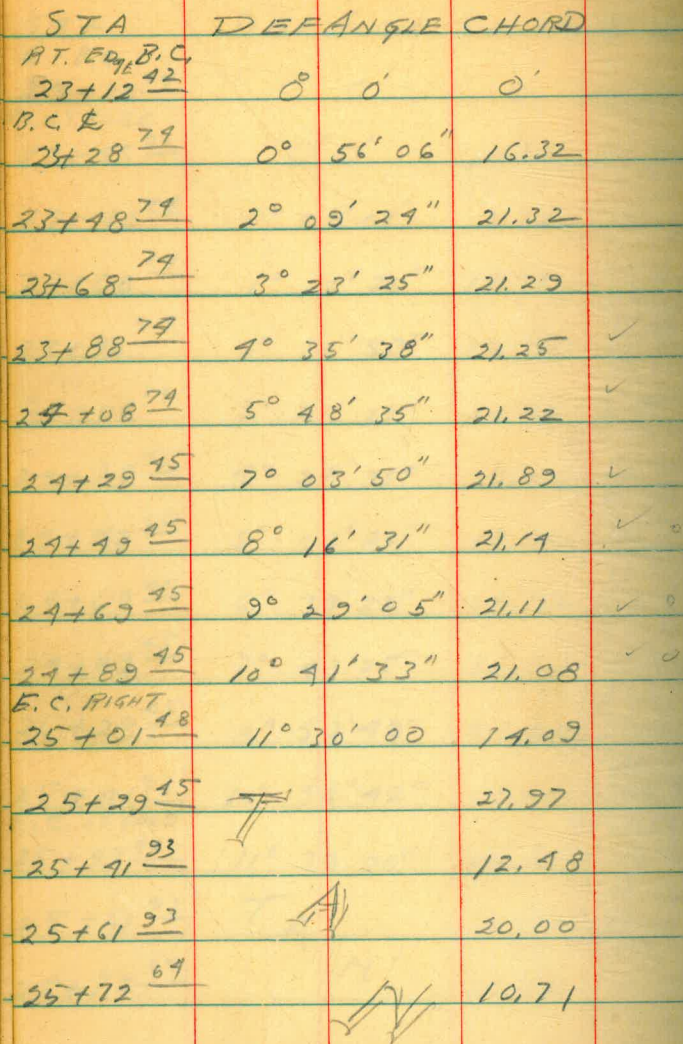 STA DEF ANGLE CHORD
RT. EDGE B.C.
23+12 42 0° 0' 0'
B.C. ℄
23+28 74 0° 56' 06" 16.32
23+48 74 2° 09' 24" 21.32
23+68 74 3° 23' 25" 21.29
23+88 74 4° 35' 38" 21.25 ✓
24+08 74 5° 48' 35" 21.22 ✓
24+29 45 7° 03' 50" 21.89 ✓
24+49 45 8° 16' 31" 21.14 ✓
24+69 45 9° 29' 05" 21.11 ✓
24+89 45 10° 41' 33" 21.08 ✓
E.C. RIGHT
25+01 48 11° 30' 00 14.09
25+29 45 T 27.97
25+41 93 12.48
25+61 93 A 20.00
25+72 64 N 10.71